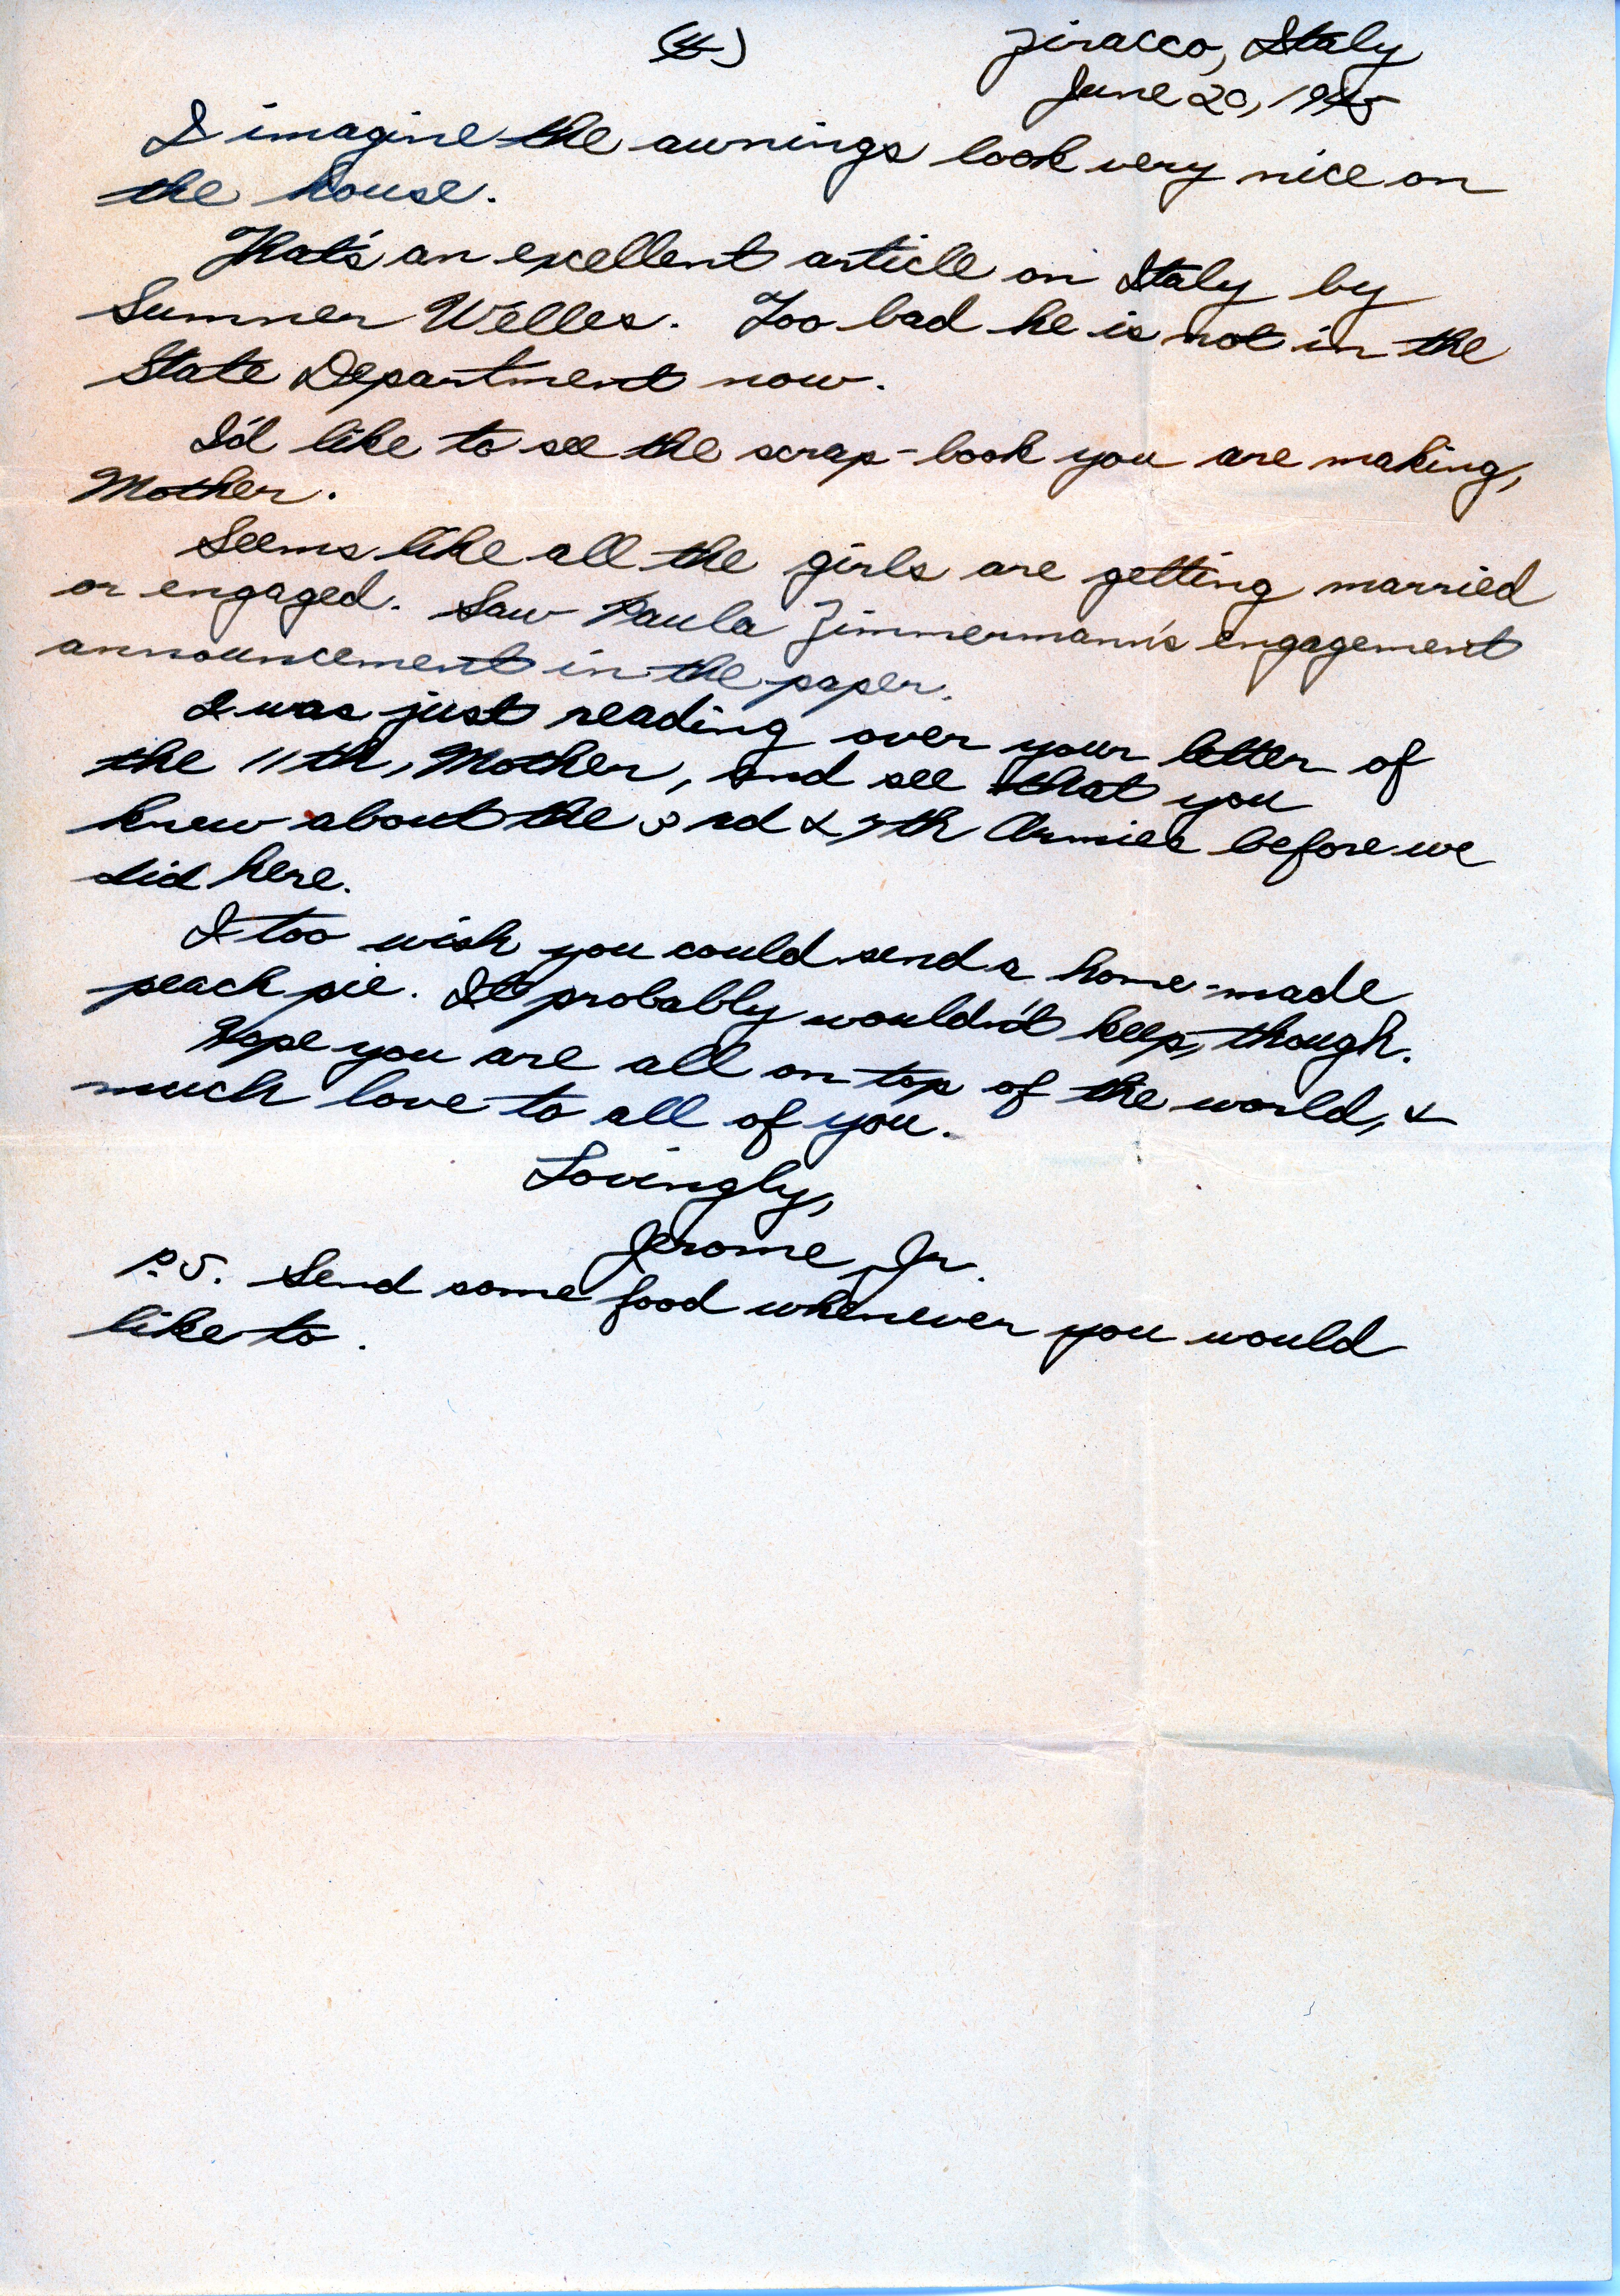 (4)
Ziracco, Italy
June 20, 1945
I imagine the awnings look very nice on
the house.
That's an excellent article on Italy by
Sumner Welles. Too bad he is not in the
State Department now.
I'd like to see the scrap-book you are making,
Mother.
Seems like all the girls are getting married
or engaged. Saw Paula Zimmermann's engagement
announcement in the paper.
I was just reading over your letter of
the 11th, Mother, and see that you
knew about the 3rd & 7th Armies before we
did here.
I too wish you could send a home-made
peach pie. It probably wouldn't keep, though.
Hope you are all on top of the world, &
much love to all of you.
Lovingly,
Jerome, Jr.
P.S. Send some food whenever you would
like to.